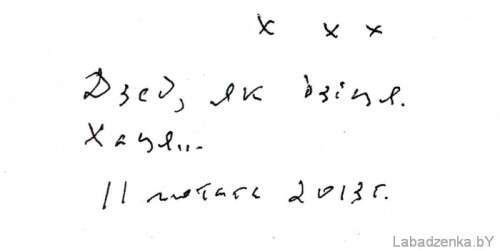 х х х
Дзед, як дзіця.
Хаця...
11 лютага 2013 г.
Labadzenka.bY